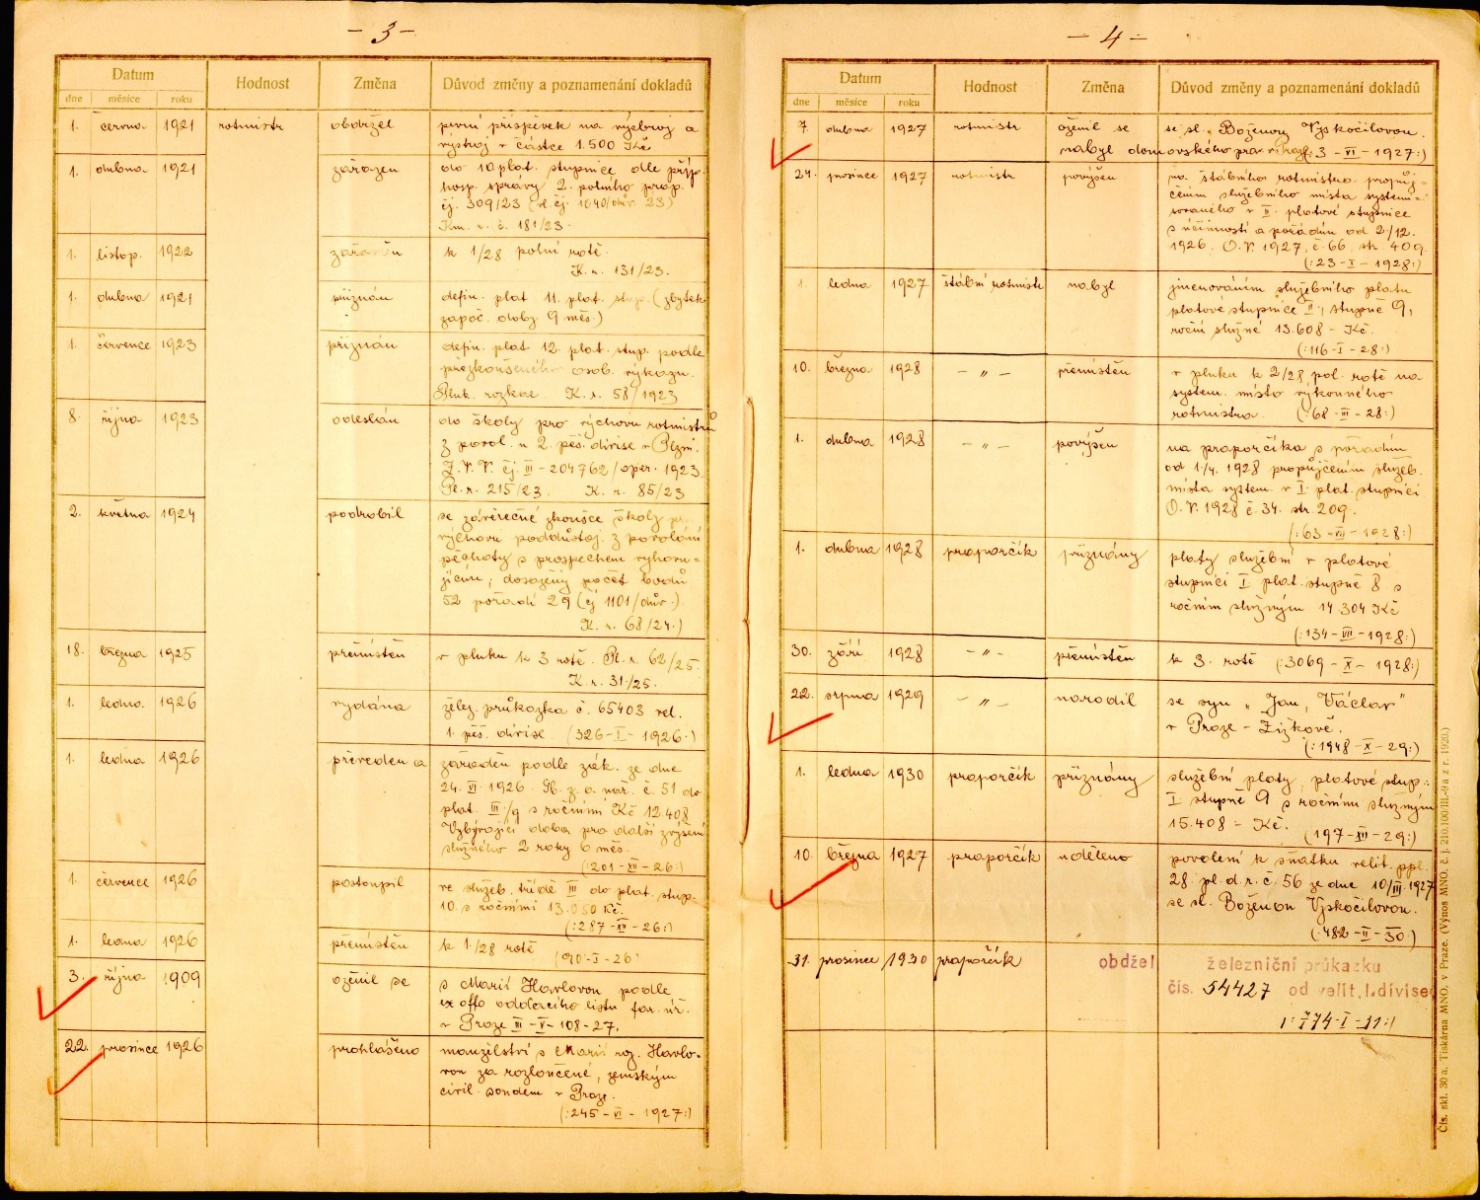 - 3 -
Datum Hodnost Změna Důvod změny a poznamenání dokladů
dne měsíce roku
1. června 1921 rotmistr obdržel první příspěvek na výzbroj a
výstroj v částce 1.500 Kč
1. dubna 1921 zařazen do 10 plat. stupnice dle příp.
hosp. správy 2. polního prap.
čj. 309/23 čj. 1040/dův. 23)
K. r. č. 181/23.
1. listop. 1922 k 1/28 polní rotě.
K. r. 131/23.
1. dubna 1921 přiznán defin. plat 11. plat. stup. (zbytek
započ. doby 9 měs.)
1. července 1923 přiznán defin. plat 12. plat. stup. podle
přezkoušeného osob. výkazu.
Pluk. rozkaz. K. r. 58/1923
8. října 1923 odeslán do školy pro výchovu rotmistrů
z povol. u 2. pěš. divise v Plzni.
Z. V. V. čj. III - 204762/oper. 1923
Pl. r. 215/23. K. r. 85/23
2. května 1924 podrobil se závěrečné zkoušce školy
výchovu poddůstoj. z povolání
pěchoty s prospěchem vyhovu-
jícím, dosažený počet bodů
52 pořadí 29 (čj 1101/dův.).
K. r. 68/24.)
18. března 1925 přemístěn v pluku k 3 rotě. Pl. r. 62/25.
K. r. 31./25.
1. ledna 1926 vydána želez. průkazka č. 65403 vel.
1. pěš. divise. (326-I-1926.)
1. ledna 1926 převeden a zařaděn podle zák. ze dne
24. VI. 1926. Sb. z. a nař. č. 51 do
plat. III./9 s ročními Kč 12.408
Vzbývající doba pro další zvýšení
služného 2 roky 6 měs.
(:201-XII-26:)
1. července 1926 postoupil ve služeb. třídě III do plat. stup.
10. s ročními 13.050 Kč.
(:287-XII-26:)
1. ledna 1926 přemístěn k 1./28 rotě
(90-I-26
3. října 1909 oženil se s Marií Havlovou podle
ex offo oddacího listu far. úř.
v Praze III-V-108-27.
22. prosince 1926 prohlášeno manželství s Marií roz. Havlo-
vou za rozloučené, zemským
civil. soudem v Praze.
(:245-VI-1927:)
- 4 -
Datum Hodnost Změna Důvod změny a poznamenání dokladů
dne měsíce roku
7. dubna 1927 rotmistr oženil se se sl. Boženou Vyskočilovou.
nabyl domovského práv. v Praze (: 3-VI-1927:)
24. prosince 1927 rotmistr povýšen na štábního rotmistra propůj-
čením služebního místa systemi-
sovaného v II. platové stupnice
s účinností a pořadím od 2/12.
1926. O.V. 1927. č. 66. str. 409
(:23-I-1928:)
1. ledna 1927 štábní rotmistr nabyl jmenováním služebního platu
platové stupnice II., stupně 9,
roční služné 13.608- Kč.
(:116-I-28:)
10. března 1928 - " - přemístěn v pluku k 2/28 pol. rotě na
system. místo výkonného
rotmistra. (:68-III-28:)
1. dubna 1928 - " - povýšen na praporčíka s pořadím
od 1./4. 1928 propůjčením služeb.
místa system. v I. plat. stupnici
O.V. 1928 č. 34. str. 209.
(:63-VII-1928:)
1. dubna 1928 praporčík přiznány platy služební v platové
stupnici I plat. stupně 8 s
ročním služným 14 304 Kč
(:134-VII-1928:)
30. září 1928 - " - přemístěn k 3. rotě (:3069-X-1928:)
22. srpna 1929 - " - narodil se syn „Jan, Václav"
v Praze - Žižkově.
(:1948-X-29:)
1. ledna 1930 praporčík přiznány služební platy, platové stup.:
I stupně 9 s ročním služným
15.408- Kč. (197-XII-29:)
10. března 1927 praporčík uděleno povolení k sňatku velit. ppl.
28. pl. d. r. č. 56 ze dne 10/III.1927
se sl. Boženou Vyskočilovou.
(:482-II-30:)
31. prosince 1930 praporčík obdžel železniční průkazku
čís. 54427 od velit. I. divise.
(:774-I-31:)
Čís. skl. 30 a. Tiskárna MNO. v Praze. (Výnos MNO. č. j. 210.100/III.-9 a z r. 1920.)